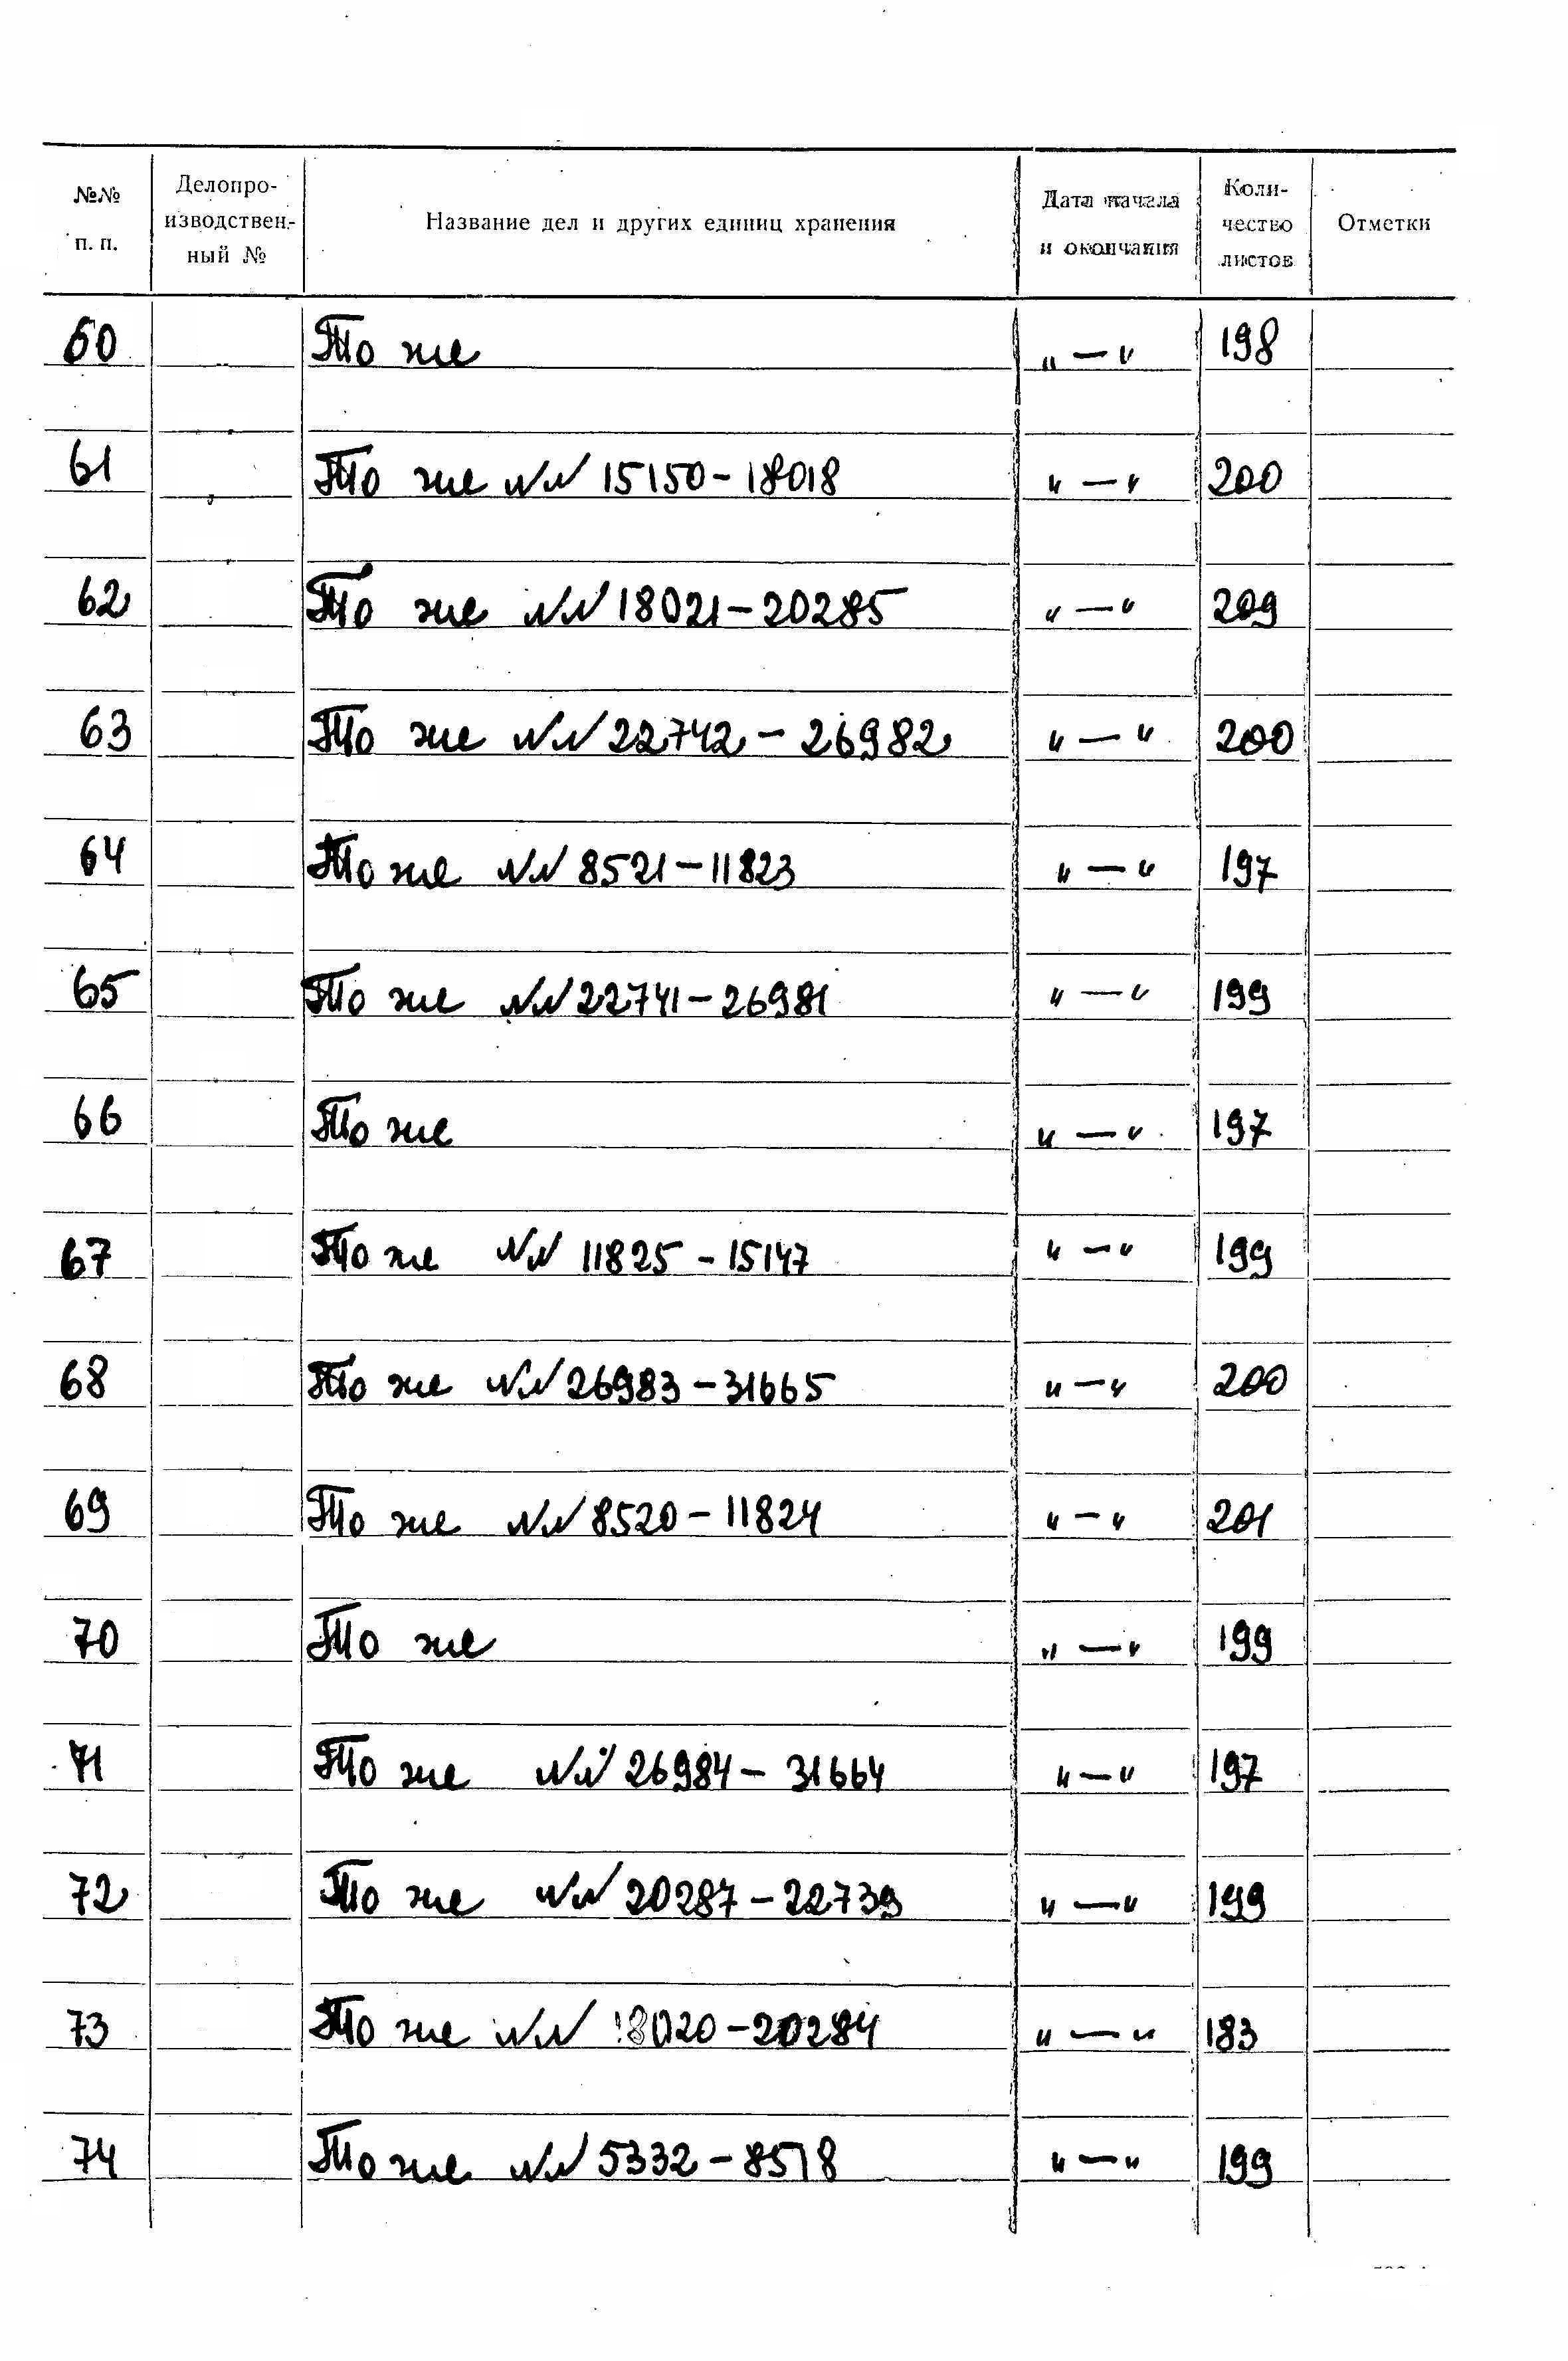 №№ п. п. Делопроизводственный № Название дел и других единиц хранения Дата начала и окончания Количество листов Отметки
60 То же „ — " 198
61 То же №№ 15150 - 18018 " — " 200
62 То же №№ 18021 - 20285 " — " 209
63 То же №№ 22742 - 26982 " — " 200
64 То же №№ 8521 - 11823 " — " 197
65 То же №№ 22741 - 26981 " — " 199
66 То же " — " 197
67 То же №№ 11825 - 15147 " — " 199
68 То же №№ 26983 - 31665 " — " 200
69 То же №№ 8520 - 11824 " — " 201
70 То же „ — " 199
71 То же №№ 26984 - 31664 " — " 197
72 То же №№ 20287 - 22739 " — " 199
73 То же №№ 18020 - 20284 " — " 183
74 То же №№ 5332 - 8518 " — " 199